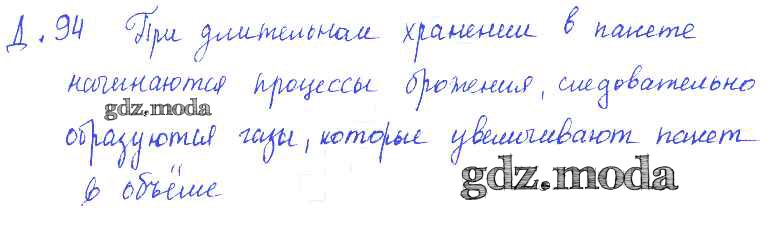 Д. 94 При длительном хранении в пакете
начинаются процессы брожения, следовательно
gdz.moda
образуются газы, которые увеличивают пакет
gdz.moda
в объёме